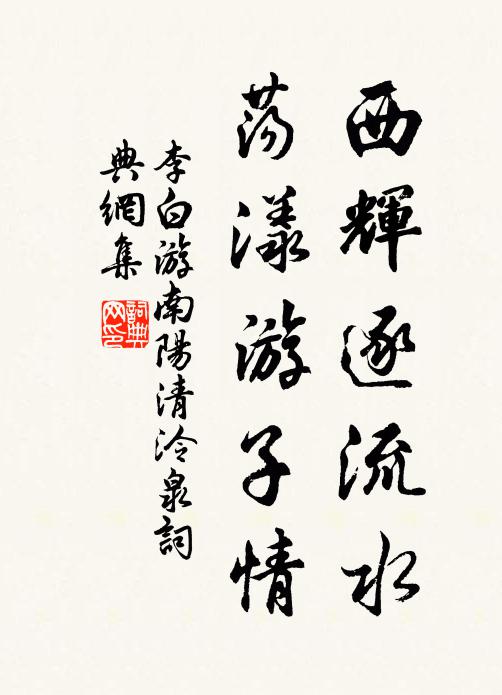 西輝逐流水
蕩漾游子情
李白游南陽清泠泉詞
典網集
詞典网印